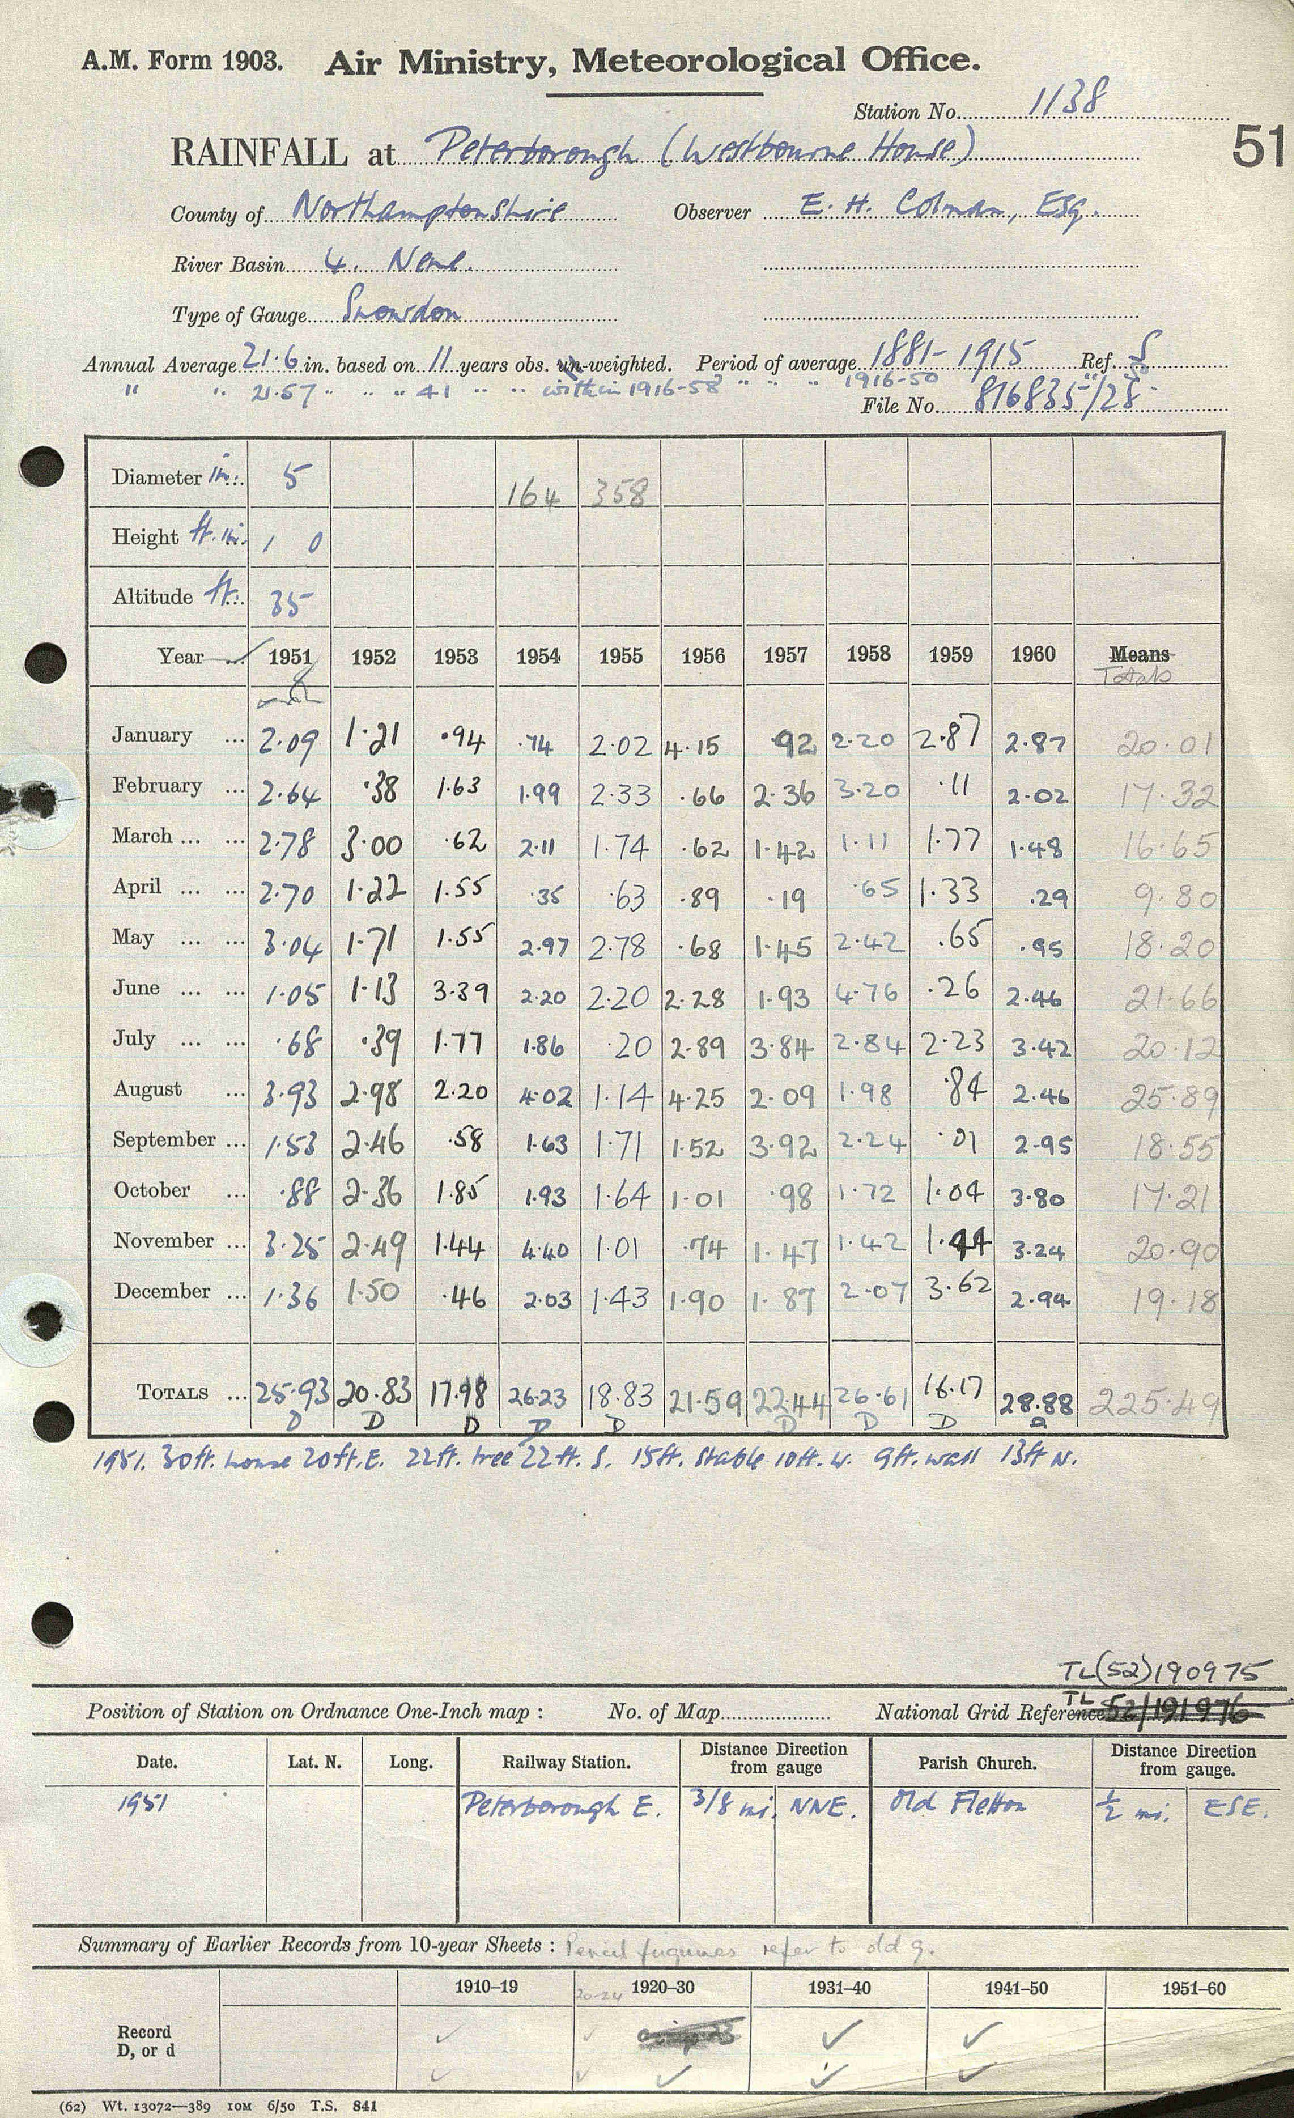 A.M. Form 1903. Air Ministry, Meteorological Office.
Station No. 1138
51
RAINFALL at Peterborough (Westbourne House)
County of Northamptonshire Observer E. H. Colman, Esq.
River Basin 4. Nene.
Type of Gauge Snowdon
Annual Average 21.6 in. based on 11 years obs. un-weighted. Period of average 1881-1915 Ref. S
" " 21.57 " " " 41 " " within 1916-58 " " " 1916-50
File No. 816835/28
Diameter in. 5 164 358
Height ft. in. 1 0
Altitude ft. 35
Year 1951 1952 1953 1954 1955 1956 1957 1958 1959 1960 Means
Totals
January 2.09 1.21 .94 .74 2.02 4.15 .92 2.20 2.87 2.87 20.01
February 2.64 .38 1.63 1.99 2.33 .66 2.36 3.20 .11 2.02 17.32
March 2.78 3.00 .62 2.11 1.74 .62 1.42 1.11 1.77 1.48 16.65
April 2.70 1.22 1.55 .35 .63 .89 .19 .65 1.33 .29 9.80
May 3.04 1.71 1.55 2.97 2.78 .68 1.45 2.42 .65 .95 18.20
June 1.05 1.13 3.39 2.20 2.20 2.28 1.93 4.76 .26 2.46 21.66
July .68 .39 1.77 1.86 .20 2.89 3.84 2.84 2.23 3.42 20.12
August 3.93 2.98 2.20 4.02 1.14 4.25 2.09 1.98 .84 2.46 25.89
September 1.53 2.46 .58 1.63 1.71 1.52 3.92 2.24 .01 2.95 18.55
October .88 2.36 1.85 1.93 1.64 1.01 .98 1.72 1.04 3.80 17.21
November 3.25 2.49 1.44 4.40 1.01 .74 1.47 1.42 1.44 3.24 20.90
December 1.36 1.50 .46 2.03 1.43 1.90 1.87 2.07 3.62 2.94 19.18
TOTALS 25.93 20.83 17.98 26.23 18.83 21.59 22.44 26.61 16.17 28.88 225.49
D D D D D D D D
1951. 30ft. house 20ft. E. 22ft. tree 22ft. S. 15ft. stable 10ft. W. 9ft. wall 13ft N.
TL(52)190975
Position of Station on Ordnance One-Inch map : No. of Map National Grid Reference TL 52/191976
Date. Lat. N. Long. Railway Station. Distance Direction from gauge Parish Church. Distance Direction from gauge.
1951 Peterborough E. 3/8 mi. NNE. Old Fletton 1/2 mi. ESE.
Summary of Earlier Records from 10-year Sheets : Pencil figures refer to old g.
1910-19 20-24 1920-30 1931-40 1941-50 1951-60
Record
D, or d
(62) Wt. 13072—389 10M 6/50 T.S. 841